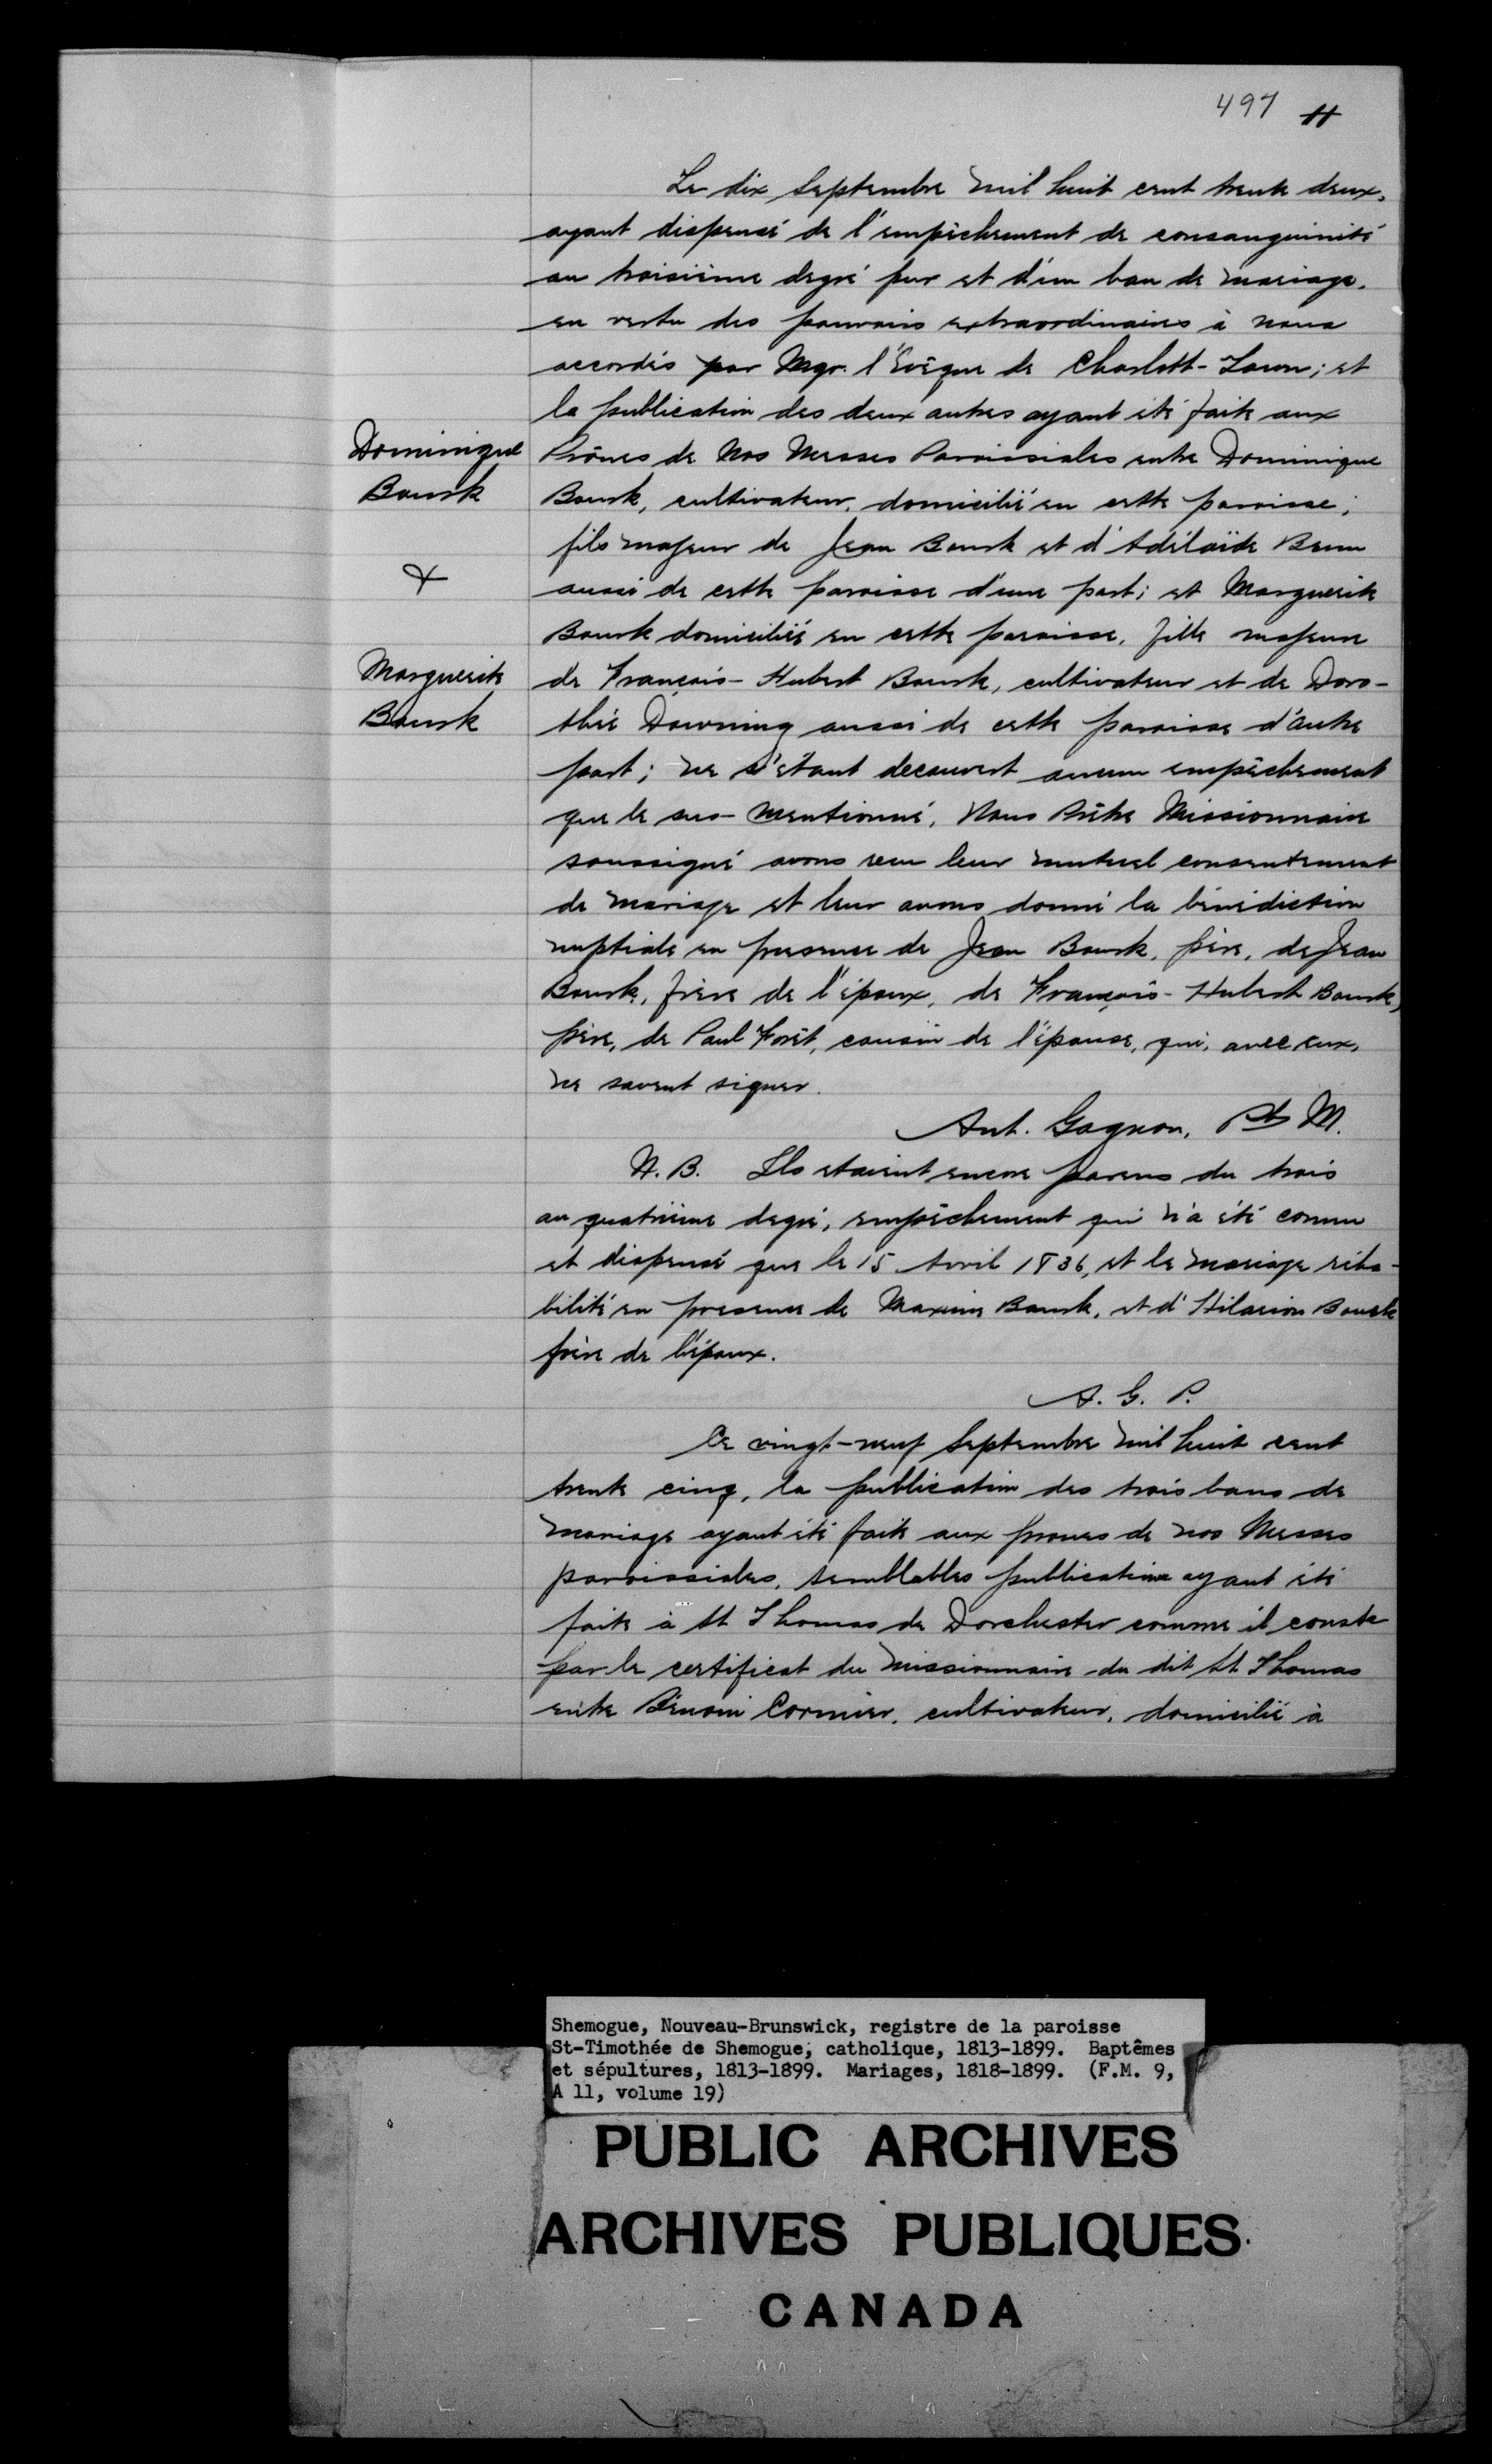 497 11
Le dix Septembre mil huit cent trente deux,
ayant dispensé de l'empêchement de consanguinité
au troisième degré pur et d'un ban de mariage,
en vertu des pouvoirs extraordinaires à nous
accordés par Mgr. l'Evêque de Charlott-Town; et
la publication des deux autres ayant été faite aux
Prônes de Nos Messes Paroissiales entre Dominique
Bourk, cultivateur, domicilié en cette paroisse;
fils majeur de Jean Bourk et d'Adélaïde Brun
aussi de cette paroisse d'une part; et Marguerite
Bourk domiciliée en cette paroisse, fille majeure
de François-Hubert Bourk, cultivateur et de Doro-
thée Downing aussi de cette paroisse d'autre
part; ne s'étant decouvert aucun empêchement
que le sus-mentionné, Nous Prêtre Missionnaire
soussigné avons reçu leur mutuel consentement
de mariage et leur avons donné la bénédiction
nuptiale en presence de Jean Bourk, père, de Jean
Bourk, frère de l'époux, de François-Hubert Bourk,
père, de Paul Forêt, cousin de l'épouse, qui, avec eux,
ne savent signer.
Ant. Gagnon, Ptr M.
N.B. Ils etaient encore parens du trois
au quatrième degré, empêchement qui n'a été connu
et dispensé que le 15 Avril 1836, et le mariage réha-
bilité en presence de Maxime Bourk, et d'Hilarion Bourk
frère de l'époux.
A. G. P.
Ce vingt-neuf Septembre mil huit cent
trente cinq, la publication des trois bans de
mariage ayant été faite aux prones de nos Messes
paroissiales, semblables publication ayant été
faite à St Thomas de Dorchester comme il conste
par le certificat du missionnaire du dit St Thomas
entre Bénoni Cormier, cultivateur, domicilié à
Dominique
Bourk
&
Marguerite
Bourk
Shemogue, Nouveau-Brunswick, registre de la paroisse
St-Timothée de Shemogue, catholique, 1813-1899. Baptêmes
et sépultures, 1813-1899. Mariages, 1818-1899. (F.M. 9,
A 11, volume 19)
PUBLIC ARCHIVES
ARCHIVES PUBLIQUES
CANADA